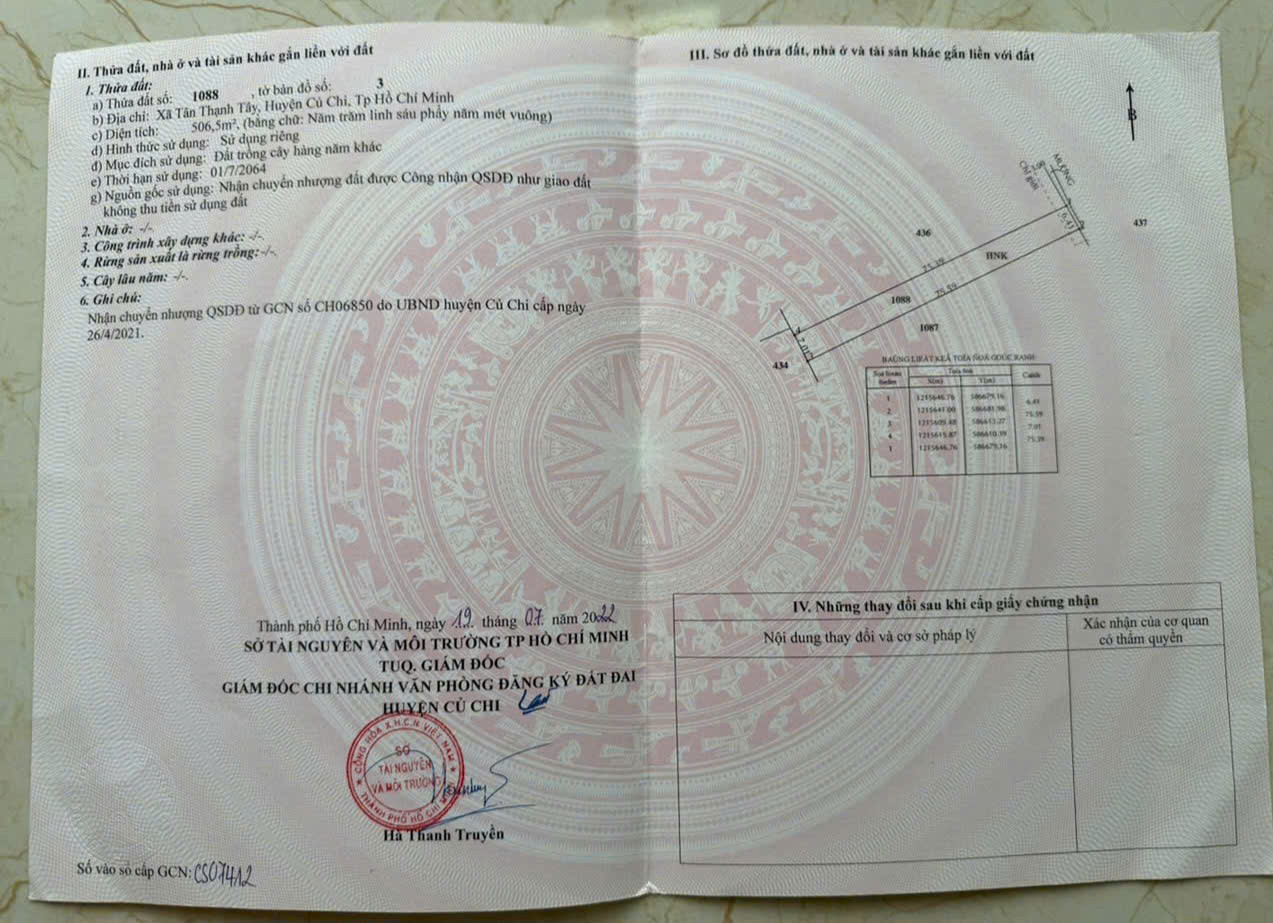 II. Thửa đất, nhà ở và tài sản khác gắn liền với đất
1. Thửa đất:
a) Thửa đất số: 1088 , tờ bản đồ số: 3
b) Địa chỉ: Xã Tân Thạnh Tây, Huyện Củ Chi, Tp Hồ Chí Minh
c) Diện tích: 506,5m², (bằng chữ: Năm trăm linh sáu phẩy năm mét vuông)
d) Hình thức sử dụng: Sử dụng riêng
đ) Mục đích sử dụng: Đất trồng cây hàng năm khác
e) Thời hạn sử dụng: 01/7/2064
g) Nguồn gốc sử dụng: Nhận chuyển nhượng đất được Công nhận QSDĐ như giao đất
không thu tiền sử dụng đất
2. Nhà ở: -/-
3. Công trình xây dựng khác: -/-
4. Rừng sản xuất là rừng trồng: -/-
5. Cây lâu năm: -/-
6. Ghi chú:
Nhận chuyển nhượng QSDĐ từ GCN số CH06850 do UBND huyện Củ Chi cấp ngày
26/4/2021.
Thành phố Hồ Chí Minh, ngày 19 tháng 07 năm 2022
SỞ TÀI NGUYÊN VÀ MÔI TRƯỜNG TP HỒ CHÍ MINH
TUQ. GIÁM ĐỐC
GIÁM ĐỐC CHI NHÁNH VĂN PHÒNG ĐĂNG KÝ ĐẤT ĐAI
HUYỆN CỦ CHI
CỘNG HÒA X.H.C.N VIỆT NAM
SỞ
TÀI NGUYÊN
VÀ MÔI TRƯỜNG
THÀNH PHỐ HỒ CHÍ MINH
Hà Thanh Truyền
Số vào sổ cấp GCN: CS07412
III. Sơ đồ thửa đất, nhà ở và tài sản khác gắn liền với đất
B
MƯƠNG
Chỉ giới
6.41
437
436
HNK
75.39
75.59
1088
1087
7.01
434
BAÛNG LIEÄT KEÂ TOÏA ÑOÄ GOÙC RANH
X(m) Y(m) Caïnh
1 1215646.76 586679.16
6.41
2 1215641.00 586681.98
75.59
3 1215609.48 586613.27
7.01
4 1215615.87 586610.39
75.39
1 1215646.76 586679.16
IV. Những thay đổi sau khi cấp giấy chứng nhận
Nội dung thay đổi và cơ sở pháp lý
Xác nhận của cơ quan
có thẩm quyền